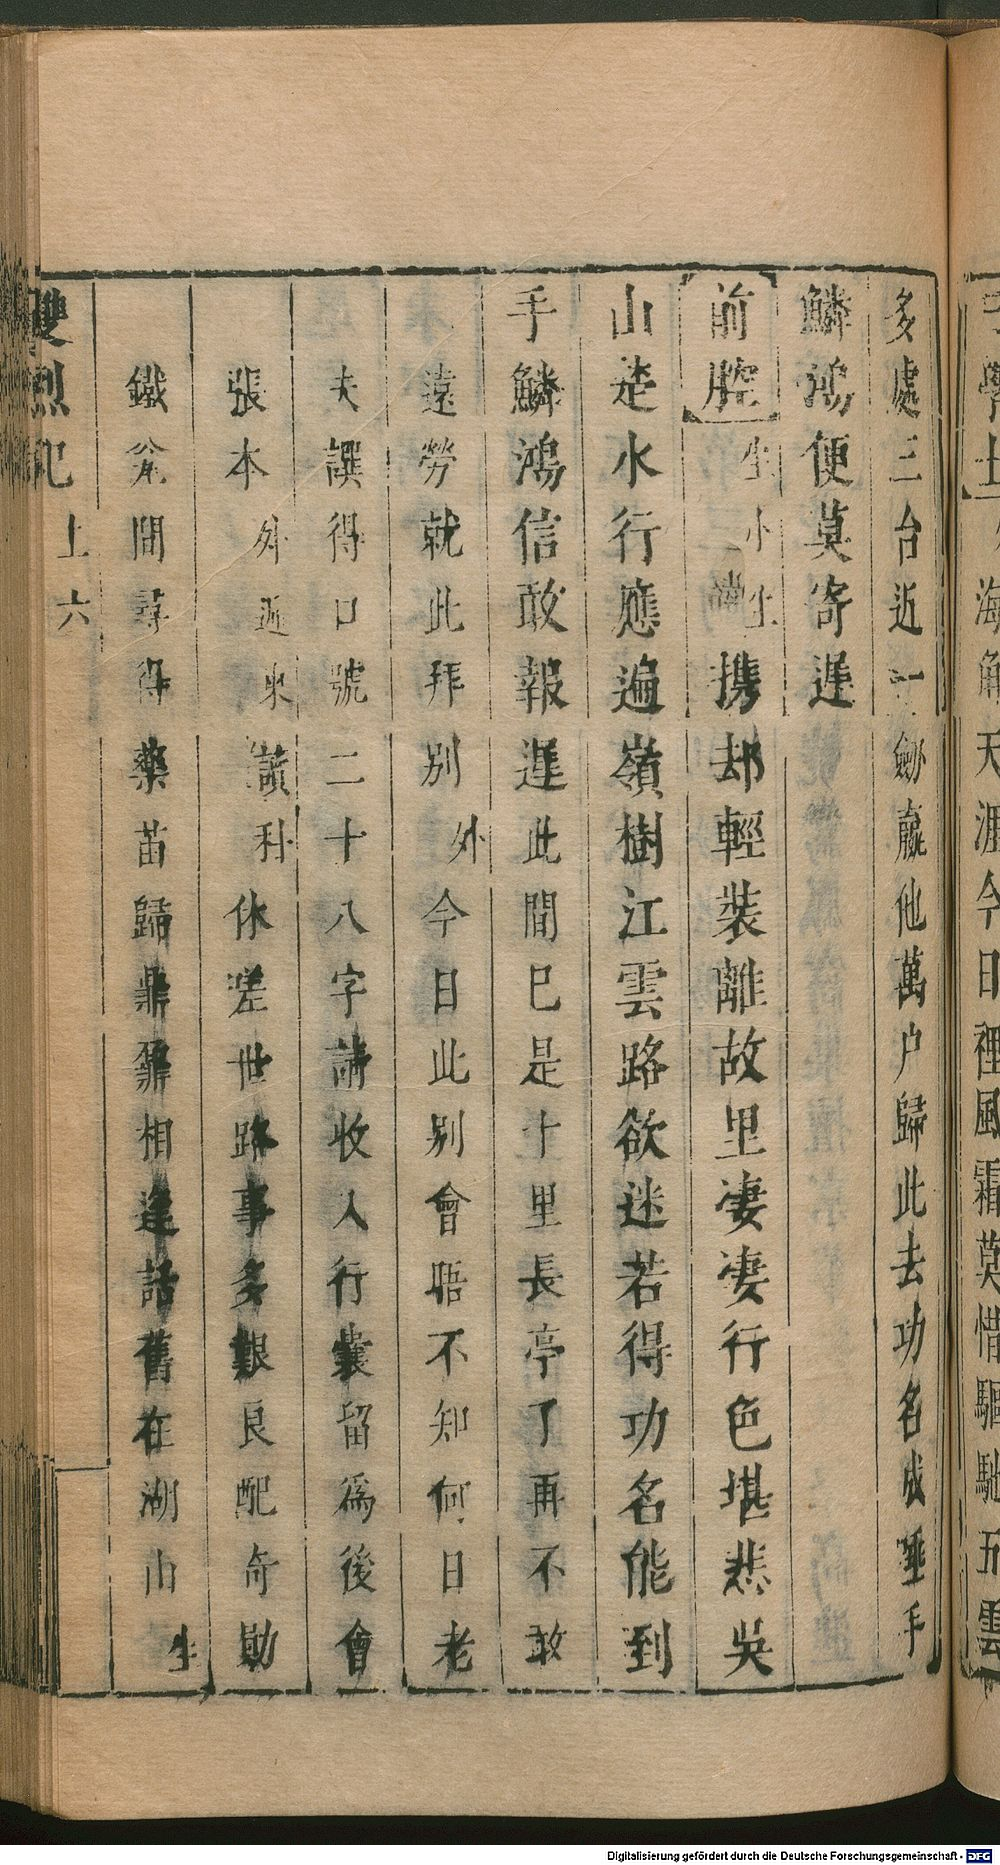 海角天涯今日裡風霜莫惜驅馳五雲
多處三台近一劍贏他萬户歸此去功名成垂手
鱗鴻便莫寄遲
前腔 生小生 携却輕裝離故里凄凄行色堪悲吳
山楚水行應遍嶺樹江雲路欲迷若得功名能到
手鱗鴻信敢報遲此間已是十里長亭了再不敢
遠勞就此拜别外今日此别會晤不知何日老
夫譔得口號二十八字請收入行囊留爲後會
張本外 科 休嗟世路事多艱良配奇勛
鐵 間尋得藥苗歸鼎鼐相逢話舊在湖山生
雙烈记 上 六
Digitalisierung gefördert durch die Deutsche Forschungsgemeinschaft - DFG